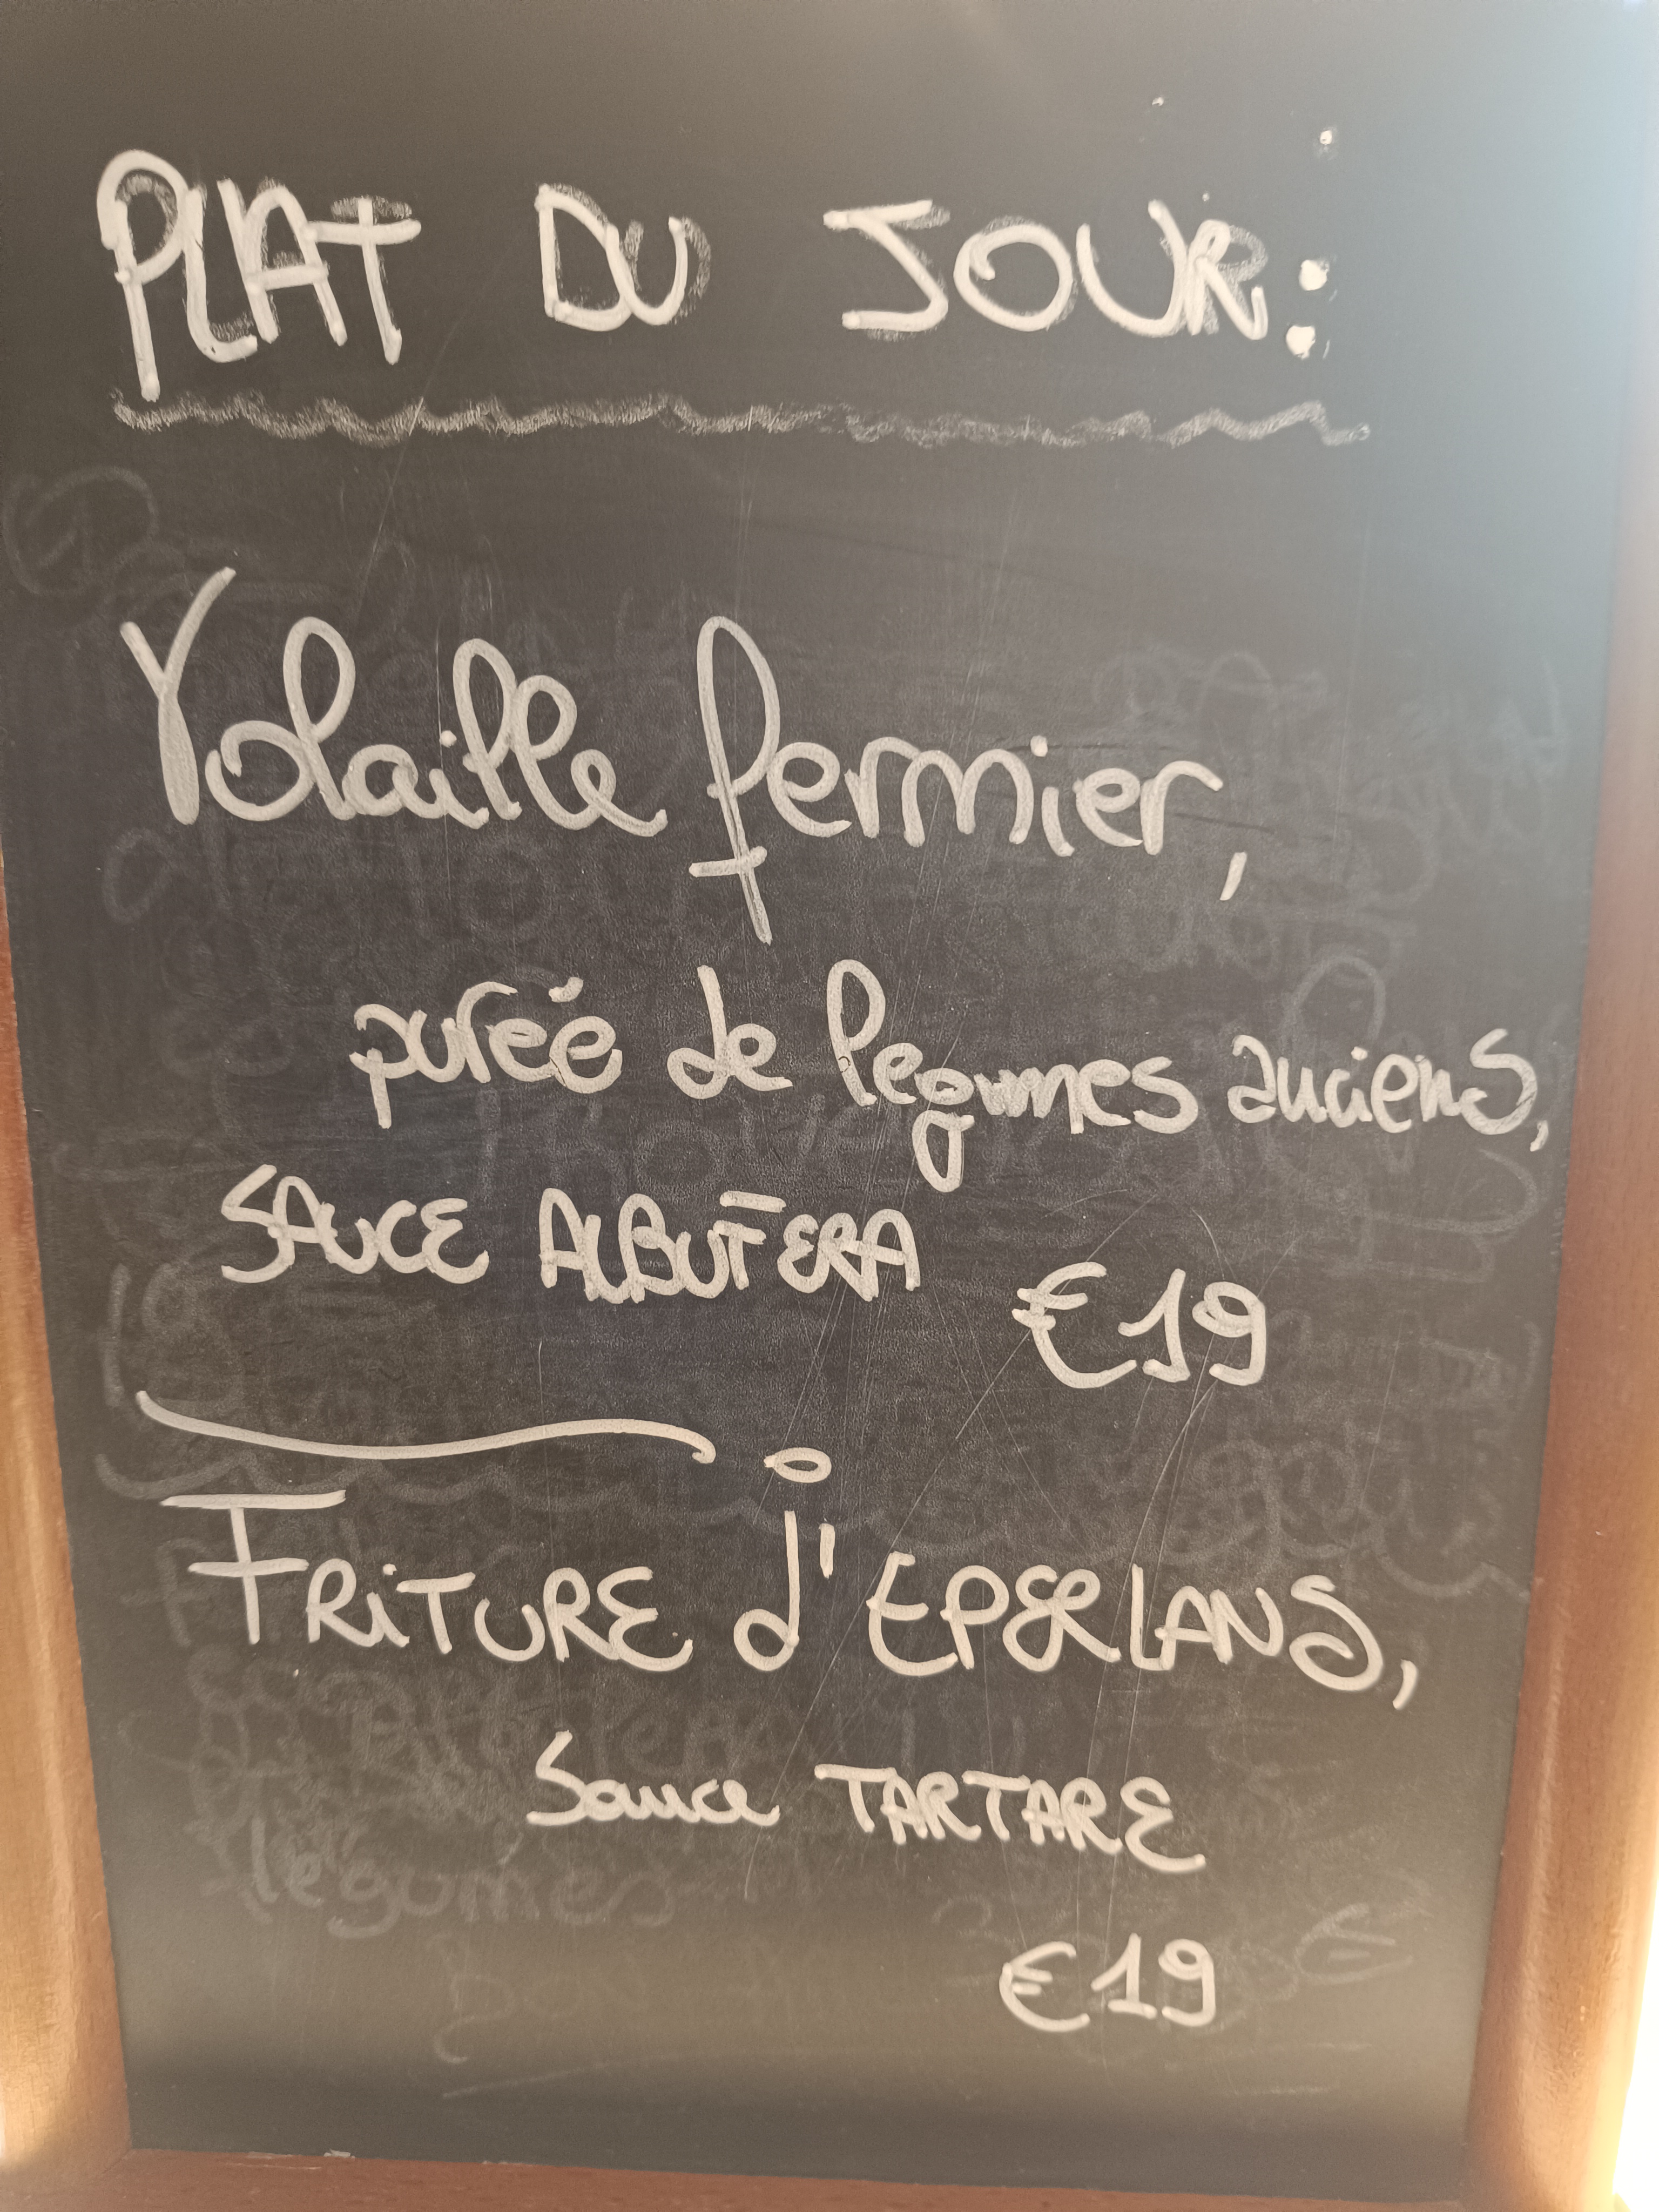 PLAT DU JOUR:
Volaille fermier,
pureé de legumes anciens,
SAUCE ALBUTERA
€19
FRITURE d'EPERLANS,
Sauce TARTARE
€19